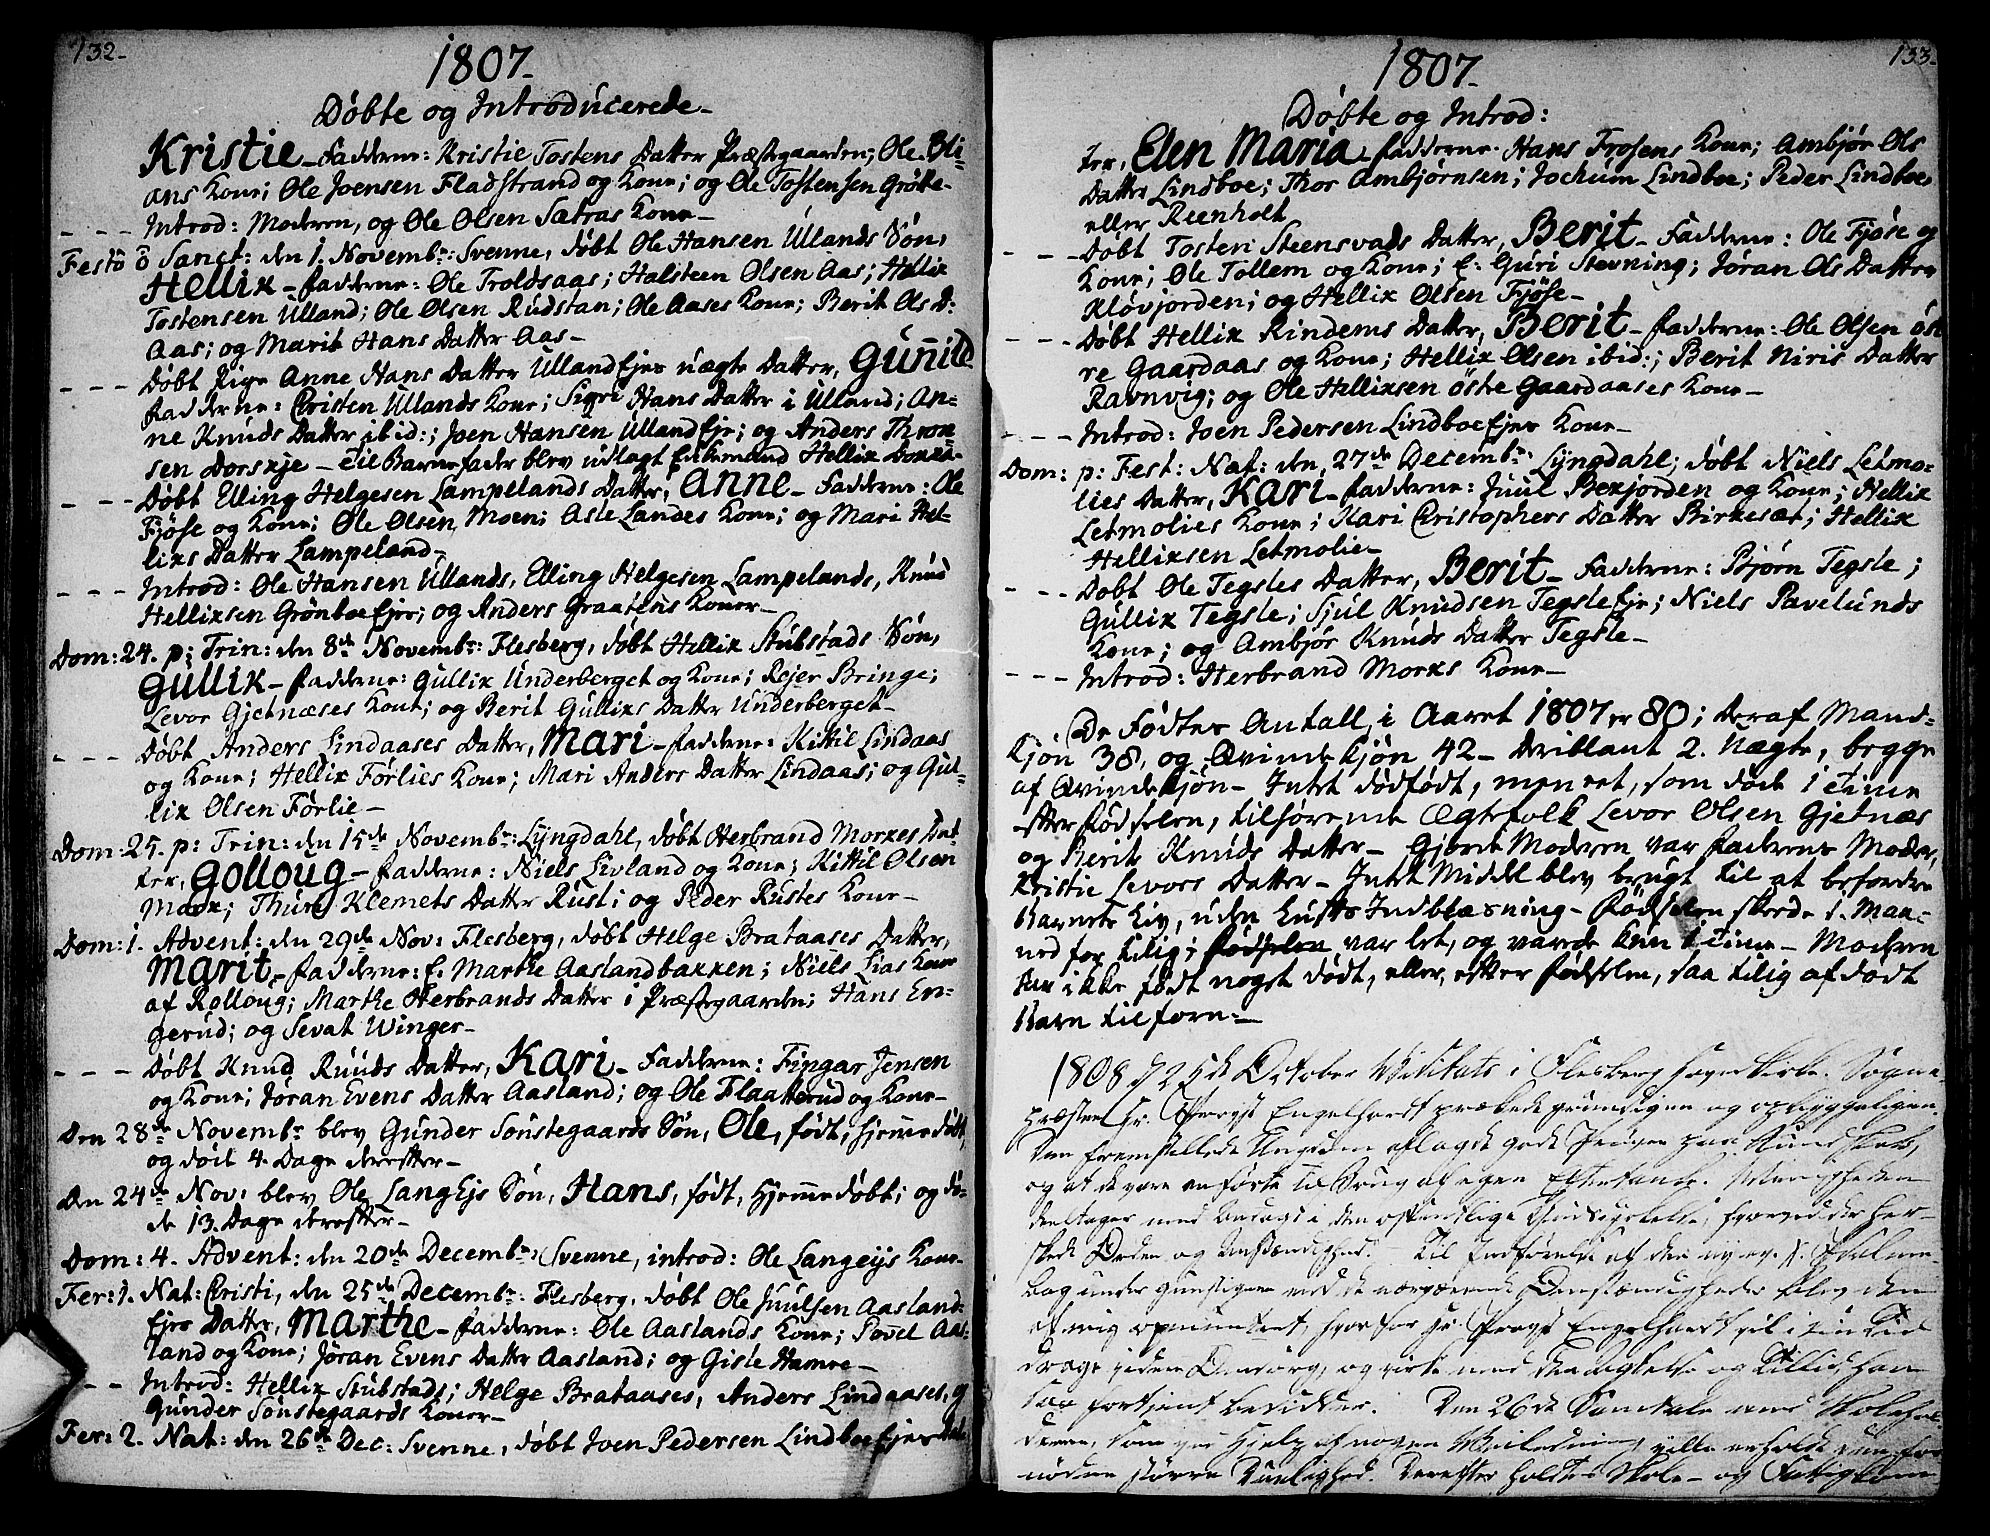 132.
1807.
Döbte og Introducerede.
Kristie. Fadderne: Kristie Tostens Datter Præstegaarden; Ole Bli-
ans Kone; Ole Joensen Fladstrand og Kone; og Ole Tostensen Grötte.
Introd: Moderen, og Ole Olsen Sætras Kone.
Festô ô Sanct: den 1. Novembr: Svenne, döbt Ole Hansen Ullands Sön,
Hellix. Fadderne: Ole Troldsaas; Halsteen Olsen Aas; Hellix
Tostensen Ulland; Ole Olsen Rudstan; Ole Aases Kone; Berit Ols D:
Aas; og Marit Hans Datter Aas.
- - - Döbt Pige Anne Hans Datter UllandEjes uægte Datter, Gunild.
Fadderne: Christen Ullands Kone; Sigri Hans Datter i Ulland; An-
ne Knuds Datter ibid:; Joen Hansen UllandEje; og Anders
sen Dorsxje. Til Barnefader blev udlagt Enkemand Hellix
- - - Döbt Elling Helgesen Lampelands Datter, Anne. Fadderne: Ole
Fjöse og Kone; Ole Olsen Moen; Asle Landes Kone; og Mari Hel-
lixs Datter Lampeland.
- - - Introd: Ole Hansen Ullands, Elling Helgesen Lampelands, Knud
Hellixsen GrönboeEjes; og Anders Graatens Koner.
Dom: 24. p: Trin: den 8de Novembr: Flesberg, döbt Hellix Stubstads Sön,
Gullik. Fadderne: Gullix Underberget og Kone; Rejer Bringe;
Levor Gjetnæses Kone; og Berit Gullixs Datter Underberget.
- - - Döbt Anders Lindaases Datter, Mari. Fadderne: Kittil Lindaas
og Kone; Hellix Förlies Kone; Mari Anders Datter Lindaas; og Gul-
lix Olsen Förlie.
Dom: 25. p: Trin: den 15de Novembr: Lyngdahl, döbt Herbrand Morxes Dat
ter, Golloug. Fadderne: Niels Livland og Kone; Kittil Olsen
Morx; Thure Klemets Datter Rust; og Peder Rustes Kone.
Dom: 1. Advent: den 29de Nov: Flesberg, döbt Helge Brataases Datter,
Marit. Fadderne: E. Marthe Aaslandbakken; Niels Lias Kone
af Rolloug; Marthe Herbrands Datter i Præstegaarden; Hans En-
gerud; og Sevat Winger.
- - - Döbt Knud Ruuds Datter, Kari. Fadderne: Fingar Jensen
og Kone; Jöran Evens Datter Aasland; og Ole Flaatterud og Kone.
Den 28de Novembr blev Gunder Sönstegaards Sön, Ole, födt, hjemmedöbt,
og döde 4. Dage derefter.
Den 24de Nov: blev Ole LangEjs Sön, Hans, födt, hjemmedöbt; og dö-
de 13. Dage derefter.
Dom: 4. Advent: den 20de Decembr: Svenne, introd: Ole Langeijs Kone.
Fer: 1. Nat: Christi, den 25de Decembr: Flesberg, döbt Ole Juulsen Aasland-
Ejes Datter, Marthe. Fadderne: Ole Aaslands Kone; Povel Aas-
land og Kone; Jöran Evens Datter Aasland; og Gisle Hamre.
- - Introd: Hellix Stubstads; Helge Brataases, Anders Lindaases, og
Gunder Sönstegaards Koner.
Fer: 2. Nat: den 26de Dec: Svenne, döbt Joen Pedersen LindboeEjes Dat
133.
1807.
Döbte og Introd:
ter, Elen Maria. Fadderne: Hans Frosens Kone; Ambjör Ols
Datter Lindboe; Thor Ambjörnsen; Jochum Lindboe; Peder Lindboe,
eller Reenholt
- - - Döbt Tosten Steensvads Datter, Berit. Fadderne: Ole Fjöse og
Kone; Ole Tollem og Kone; E: Guri Stevning; Jöran Ols Datter
Klövjorden; og Hellix Olsen Fjöse.
- - - Döbt Hellix Rindems Datter, Berit. Fadderne: Ole Olsen öst
re Gaardaas og Kone; Hellix Olsen ibid:; Berit Niris Datter
Ravnvig; og Ole Hellixsen östre Gaardaases Kone.
- - - Introd: Joen Pedersen LindboeEjes Kone.
Dom: p: Fest: Nat: den 27de Decembr: Lyngdahl; döbt Niels Letmo-
lies Datter, Kari. Fadderne: Juul Bexjorden og Kone; Hellix
Letmolies Kone; Kari Christophers Datter Birkesæt; Hellix
Hellixsen Letmolie.
- - - Döbt Ole Tegsles Datter, Berit. Fadderne: Björn Tegsle;
Gullix Tegsle; Sjul Knudsen TegsleEje; Niels Pavelunds
Kone; og Ambjör Knuds Datter Tegsle.
- - - Introd: Herbrand Morxs Kone.
De Födtes Antall i Aaret 1807 er 80; deraf Mand-
Kjön 38, og Qvinde Kjön 42. Deriblant 2. Uægte, begge
af QvindeKjön. Intet dödfödt, men eet, som döde 1 Time
efter Födselen, tilhörende Ægtefolk Levor Olsen Gjetnæs
og Berit Knuds Datter. Gjordemoderen var Faderens Moder,
Kristie Levors Datter. Intet Middel blev brugt til at befordre
Barnets Liv, uden Lufts Indblæsning. Födselen skede 1. Maa-
ned for tilig; Födselen var let, og varede kun 1 Time. Moderen
har ikke födt noget dödt, eller, efter Födselen, saa tilig afdödt
Barn tilforn.
1808 d 25de October Visitats i Flesberg Hoved Kirke. Sogne-
præsten Hr. Provst Engelhardt prækede grundigen og opbyggeligen.
Den fremstillede Ungdom aflagde gode Pröver paa Kundskab,
og at de vare anförte til Brug af egen Eftertanke. Menigheden
deeltager med Andagt i den offentlige Gudsdyrkelse, hvorved der her-
sker Orden og Anstændighed. Til Indförelse af den nye ev. k. Psalme-
Bog under gunstigere end de nærværende Omstændigheder blev den
af mig opmuntret, hvorfor Hr. Provst Engelhardt vil i sin Tid
drage sin Omsorg, og virke med den Agtelse og Tillid, han
saa fortjent besidder. Den 26de Samtale med Skolehol-
derne, som ved Hjelp af nogen Veiledning ville erholde den for-
nödne större Duelighed. Derefter holdtes Skole- og Fattigkom-